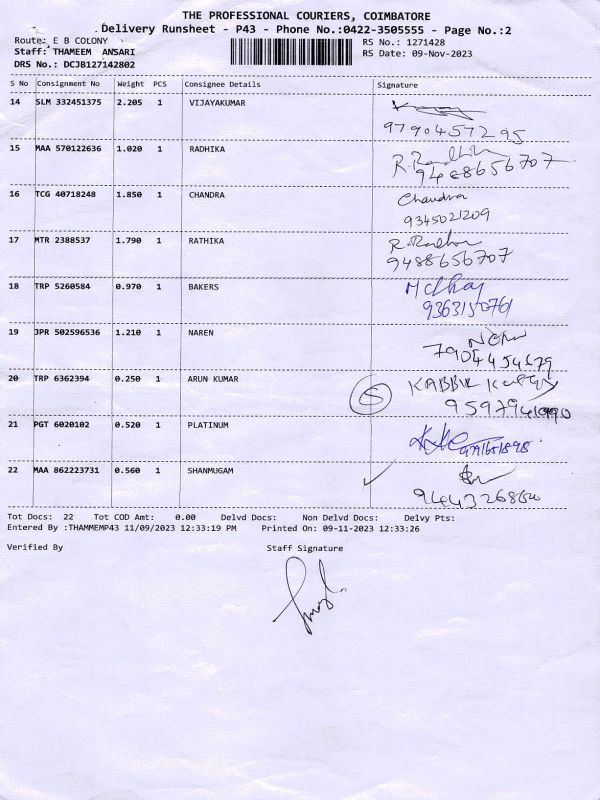 THE PROFESSIONAL COURIERS, COIMBATORE
Delivery Runsheet - P43 - Phone No.:0422-3505555 - Page No.:2
Route: E B COLONY RS No.: 1271428
Staff: THAMEEM ANSARI RS Date: 09-Nov-2023
DRS No.: DCJB127142802
S No Consignment No Weight PCS Consignee Details Signature
14 SLM 332451375 2.205 1 VIJAYAKUMAR
9790457295
15 MAA 570122636 1.020 1 RADHIKA R. Radhika
9488656707
16 TCG 40718248 1.850 1 CHANDRA Chandra
9345021209
17 MTR 2388537 1.790 1 RATHIKA R.
9488656707
18 TRP 5260584 0.970 1 BAKERS
9363150761
19 JPR 502596536 1.210 1 NAREN
7904454679
20 TRP 6362394 0.250 1 ARUN KUMAR S KABBIL
21 PGT 6020102 0.520 1 PLATINUM
22 MAA 862223731 0.560 1 SHANMUGAM
Tot Docs: 22 Tot COD Amt: 0.00 Delvd Docs: Non Delvd Docs: Delvy Pts:
Entered By :THAMMEMP43 11/09/2023 12:33:19 PM Printed On: 09-11-2023 12:33:26
Verified By Staff Signature